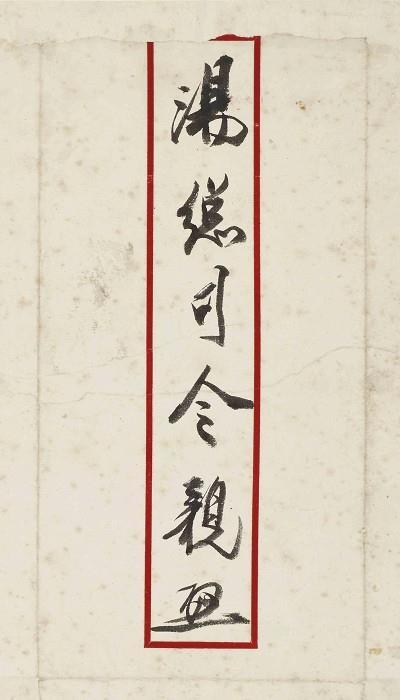 湯總司令親